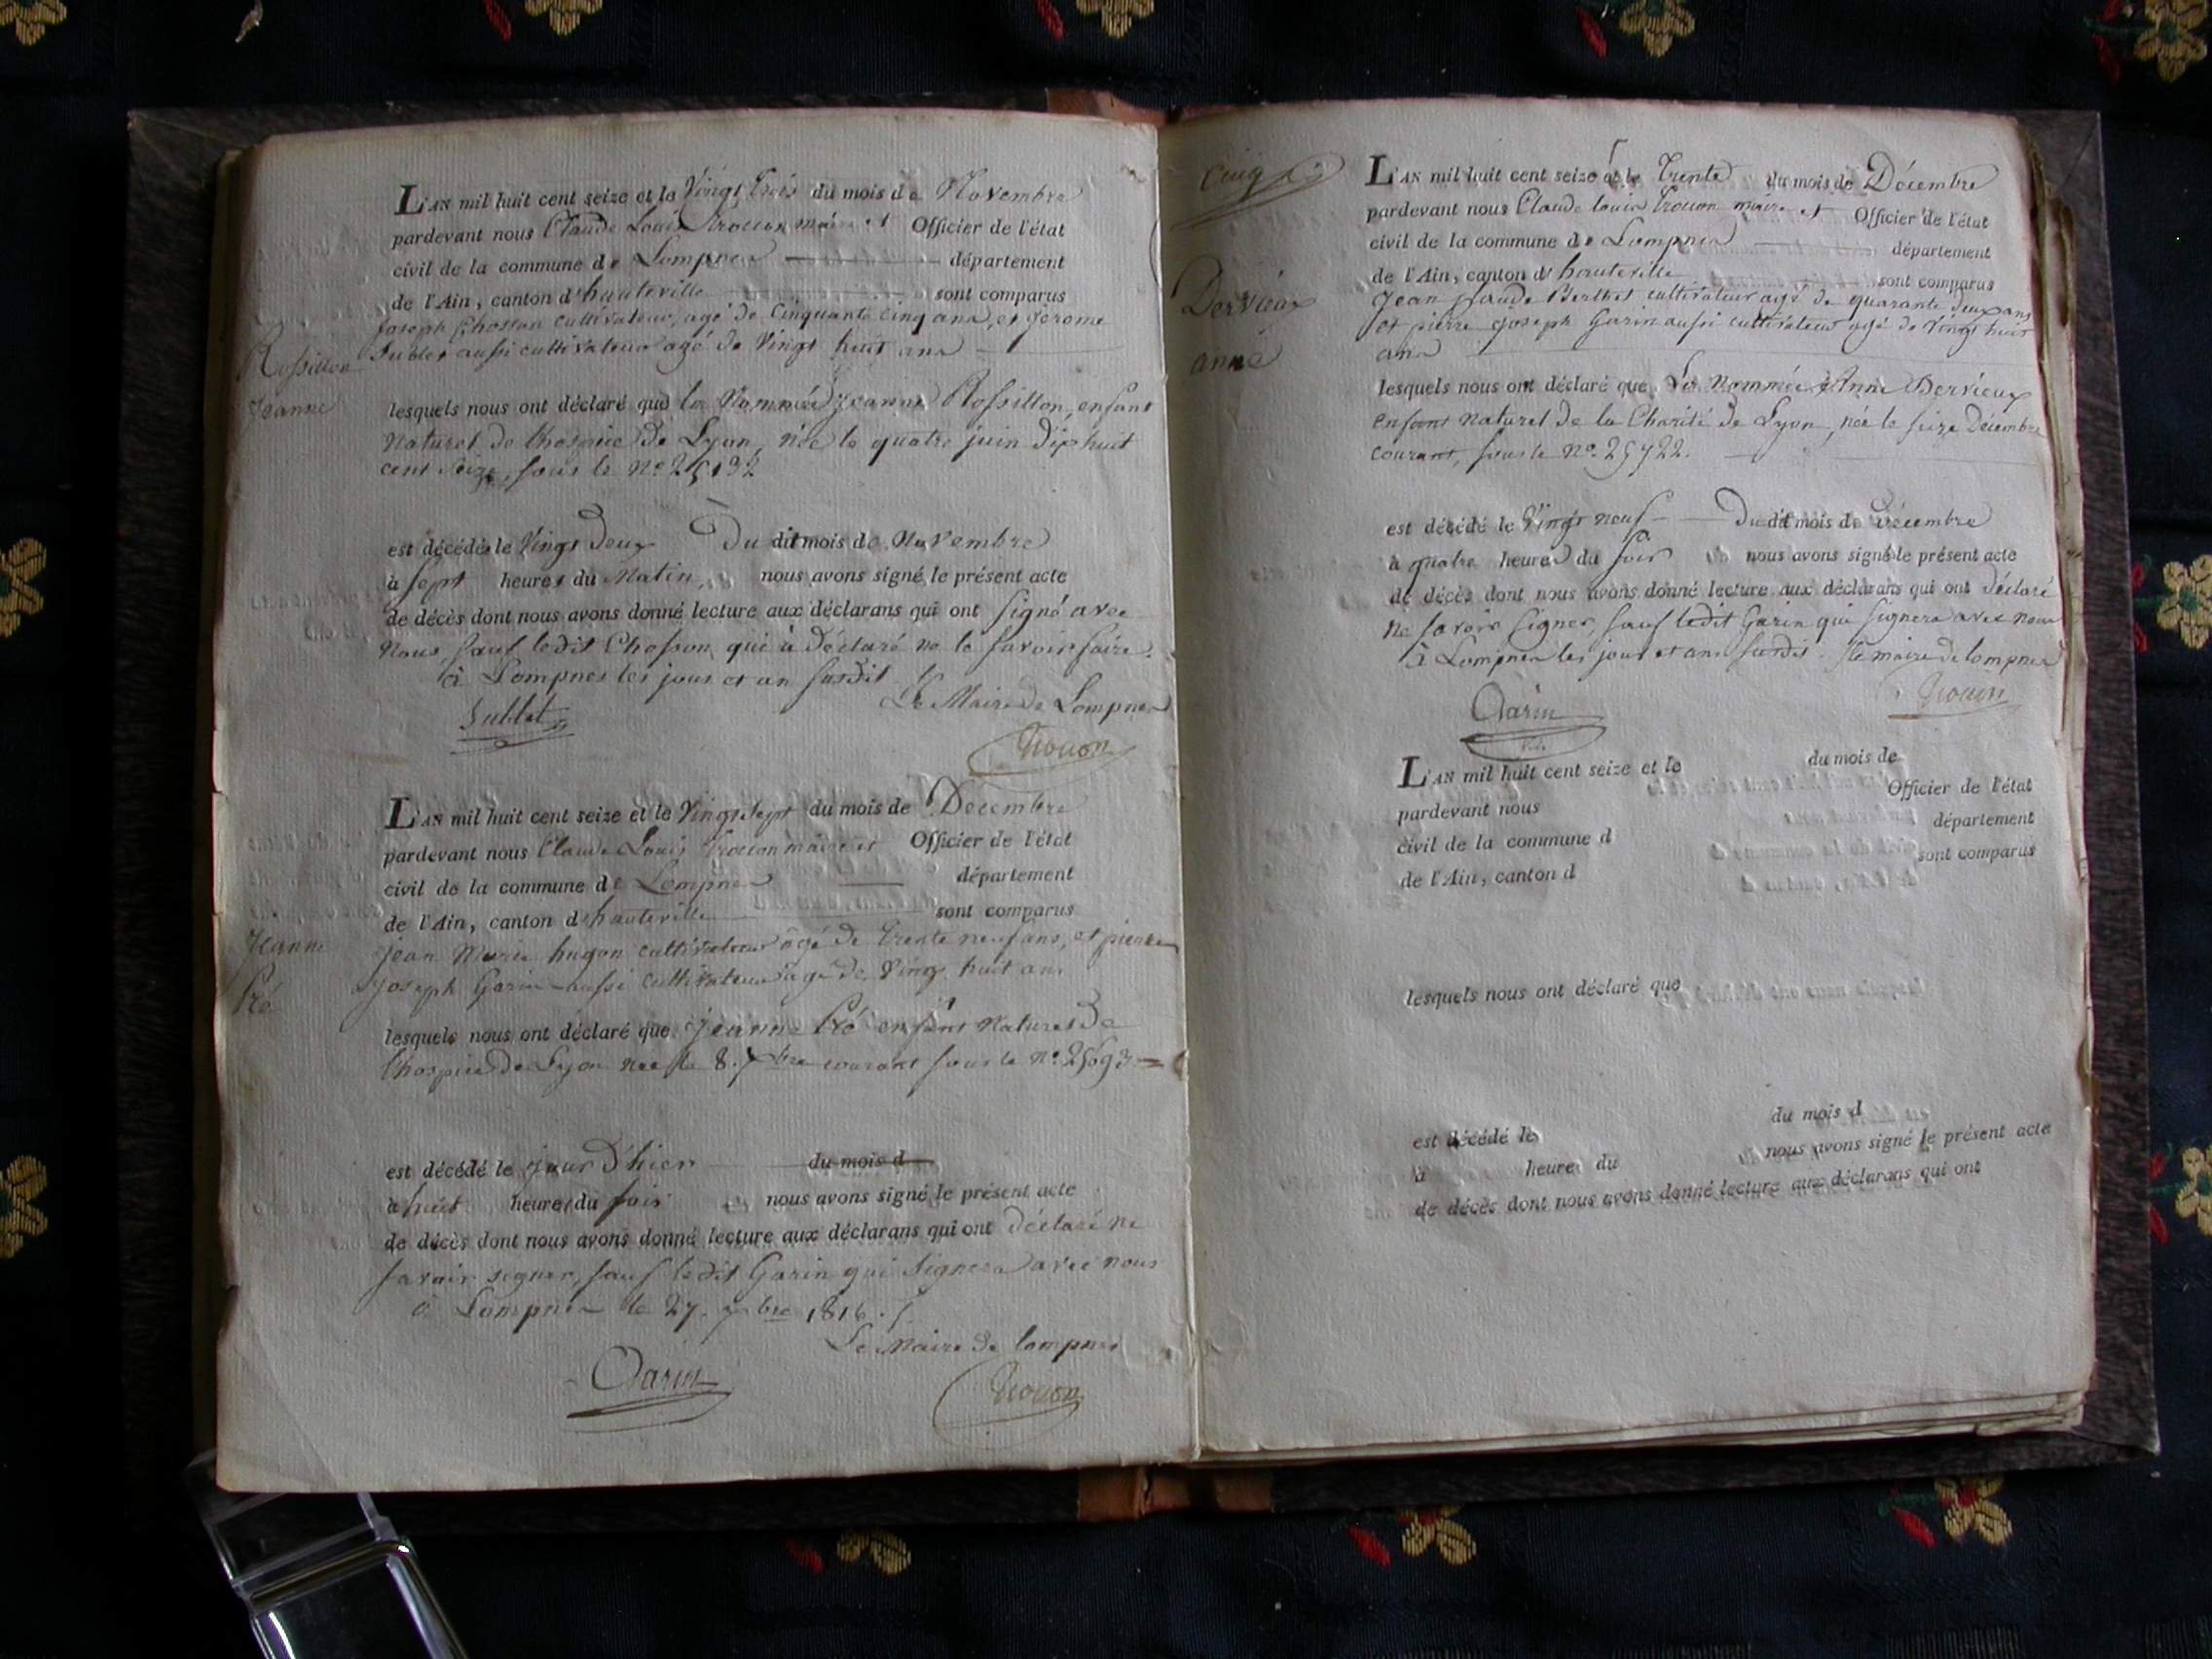 L'AN mil huit cent seize et le Vingt Trois du mois de Novembre
pardevant nous Claude Louis Trouon maire et Officier de l'état
civil de la commune de Lompnes département
de l'Ain, canton d'hauteville sont comparus
Joseph Chosson cultivateur, agé de Cinquante cinq ans, et Jerome
Sublet aussi cultivateur agé de Vingt huit ans
Rossillon
Jeanne
lesquels nous ont déclaré que la Nommée Jeanne Rossillon, enfant
Naturel de l'hospice de Lyon, née le quatre juin dix huit
cent seize, sous le No 25132
est décédée le Vingt Deux Du dit mois de Novembre
à Sept heures du Matin, nous avons signé le présent acte
de décès dont nous avons donné lecture aux déclarans qui ont signé avec
Nous, sauf ledit Chosson qui à Déclaré ne le savoir faire.
à Lompnes les jour et an susdit
Le Maire de Lompnes
Sublet
Trouon
L'AN mil huit cent seize et le Vingt Sept du mois de Décembre
pardevant nous Claude Louis Trouon maire et Officier de l'état
civil de la commune de Lompnes département
de l'Ain, canton d'hauteville sont comparus
Jeanne
Pré
Jean Marie hugon cultivateur agé de Trente neuf ans, et pierre
Joseph Garin aussi cultivateur agé de Vingt huit ans
lesquels nous ont déclaré que Jeanne Pré enfant Naturel De
l'hospice de Lyon née le 8. Xbre courant sous le No 25693
est décédé le jour D'hier du mois d
à huit heures du soir nous avons signé le présent acte
de décès dont nous avons donné lecture aux déclarans qui ont déclaré ne
savoir signer, sauf ledit Garin qui signera avec nous
à Lompnes le 27. Xbre 1816.
Le Maire de Lompnes
Garin
Trouon
Cinq
L'AN mil huit cent seize et le Trente du mois de Décembre
pardevant nous Claude Louis Trouon maire et Officier de l'état
civil de la commune de Lompnes département
de l'Ain, canton d'hauteville sont comparus
Dervieux
anne
Jean Claude Berthet cultivateur agé de quarante deux ans
et pierre Joseph Garin aussi cultivateur agé de Vingt huit
ans
lesquels nous ont déclaré que La Nommée Anne Dervieux
enfant Naturel de la Charité de Lyon, née le seize Décembre
courant, sous le No. 25722.
est décédé le Vingt neuf Du dit mois de Décembre
à quatre heures du soir nous avons signé le présent acte
de décès dont nous avons donné lecture aux déclarans qui ont déclaré
ne savoir signer, sauf ledit Garin qui signera avec nous
à Lompnes les jour et an susdis. le maire de lompnes
Garin
Trouon
L'AN mil huit cent seize et le du mois de
pardevant nous Officier de l'état
civil de la commune d département
de l'Ain, canton d sont comparus
lesquels nous ont déclaré que
est décédé le du mois d
à heure du nous avons signé le présent acte
de décès dont nous avons donné lecture aux déclarans qui ont